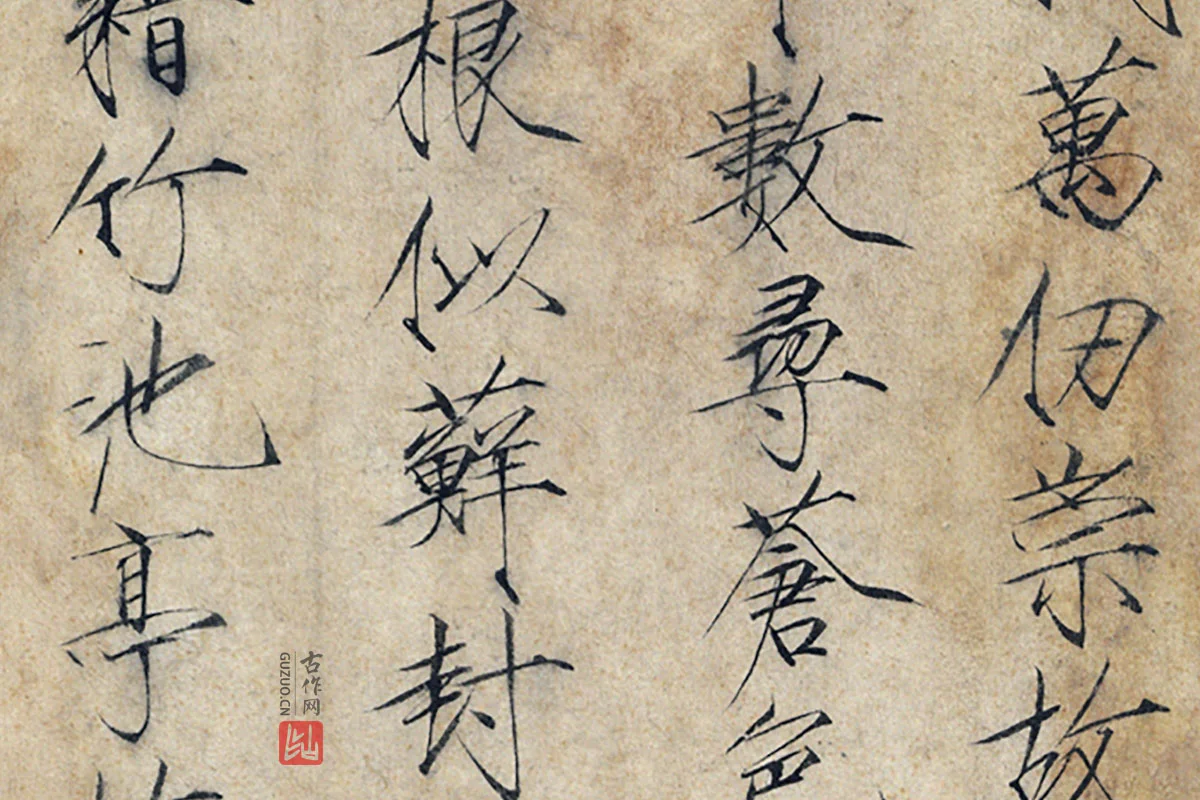 萬崇故
數尋蒼色
根似蘚封
竹池亭
古作网
GUZUO.CN